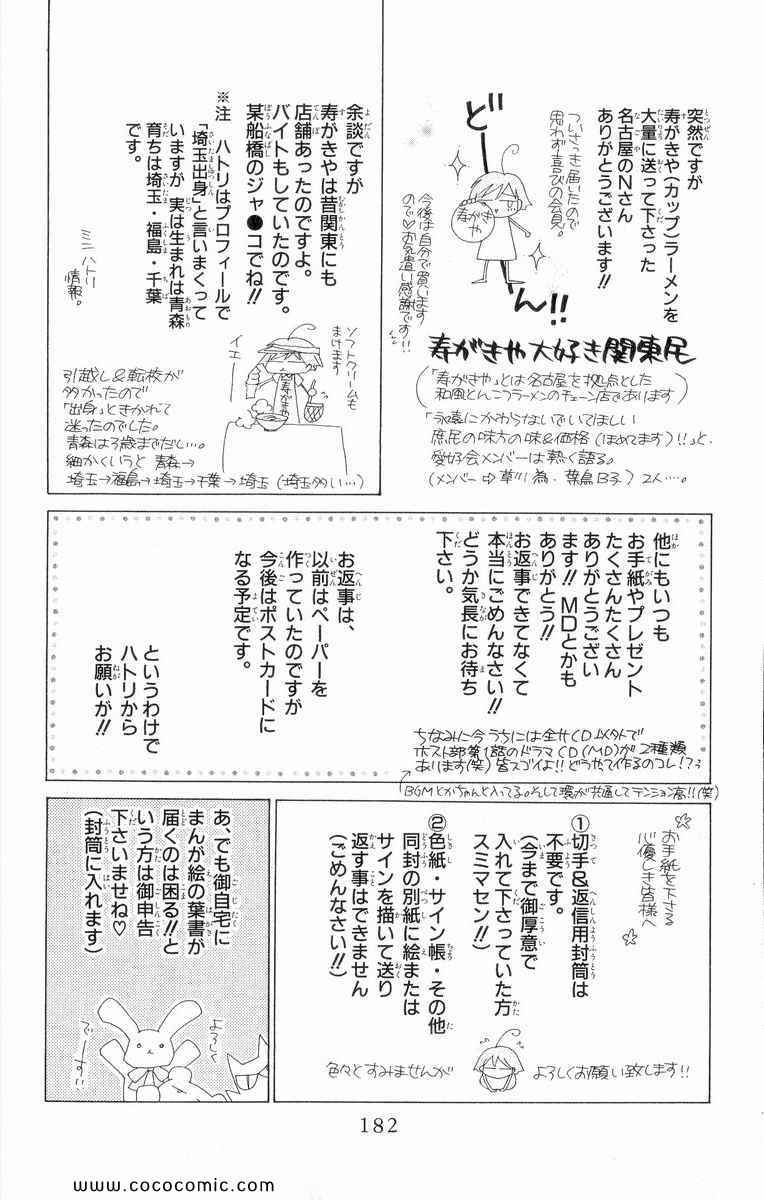 突然ですが
寿がきや(カップ)ラーメンを
大量に送って下さった
名古屋のNさん
ありがとうございます!!
ど
ーん!!
ついさっき届いたので
思わず喜びの会見。
寿がきや
今後は自分で買います
ので♡お気遣い感謝です!!
寿がきや大好き関東民
(「寿がきや」とは名古屋を拠点とした
和風とんこつラーメンのチェーン店であります)
「永遠にかわらないでいてほしい
庶民の味方の味&価格(ほめてます)!!」と、
愛好会メンバーは熱く語る。
(メンバー⇨草川為、葉鳥B子)2人…。
余談ですが
寿がきやは昔関東にも
店舗あったのですよ。
バイトもしていたのです。
某船橋のジャ●コでね!!
※注 ハトリはプロフィールで
「埼玉出身」と言いまくって
いますが 実は生まれは青森
育ちは埼玉・福島・千葉
です。
ミニハトリ
情報。
ソフトクリームも
まけます
イエー
寿がきや
引越し&転校が
多かったので
「出身」ときかれて
迷ったのでした。
青森は3歳までだし…。
細かくいうと 青森→
埼玉→福島→埼玉→千葉→埼玉(埼玉多い…)
他にもいつも
お手紙やプレゼント
たくさんたくさん
ありがとうござい
ます!! MDとかも
ありがとう!!
お返事できてなくて
本当にごめんなさい!!
どうか気長にお待ち
下さい。
お返事は、
以前はペーパーを
作っていたのですが
今後はポストカードに
なる予定です。
というわけで
ハトリから
お願いが!!
ちなみに今うちには全サCD以外で
ホスト部第1話のドラマCD(MD)が2種類
あります(笑)皆スゴイよ!!どうやって作るのコレ!?
BGMとかちゃんと入ってる。そして環が共通してテンション高!!(笑)
お手紙を下さる
心優しき皆様へ
①切手&返信用封筒は
不要です。
(今まで御厚意で
入れて下さっていた方
スミマセン!!)
②色紙・サイン帳・その他
同封の別紙に絵または
サインを描いて送り
返す事はできません
(ごめんなさい!!)
色々とすみませんが
よろしくお願い致します!!
あ、でも御自宅に
まんが絵の葉書が
届くのは困る!!と
いう方は御申告
下さいませね♡
(封筒に入れます)
よろしく
でーす!!
182
www.cococomic.com